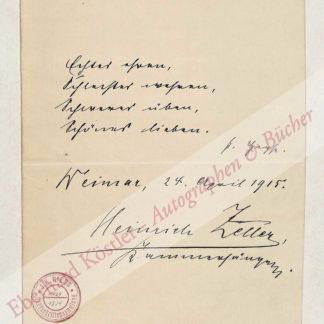 Echtes ehren,
Schlechtes wehren,
Schweres üben,
Schönes lieben.
P. Heyse.
Weimar, 24. April 1915.
Heinrich Zeller,
Kammersänger.
Eberhard Köstler Autographen & Bücher